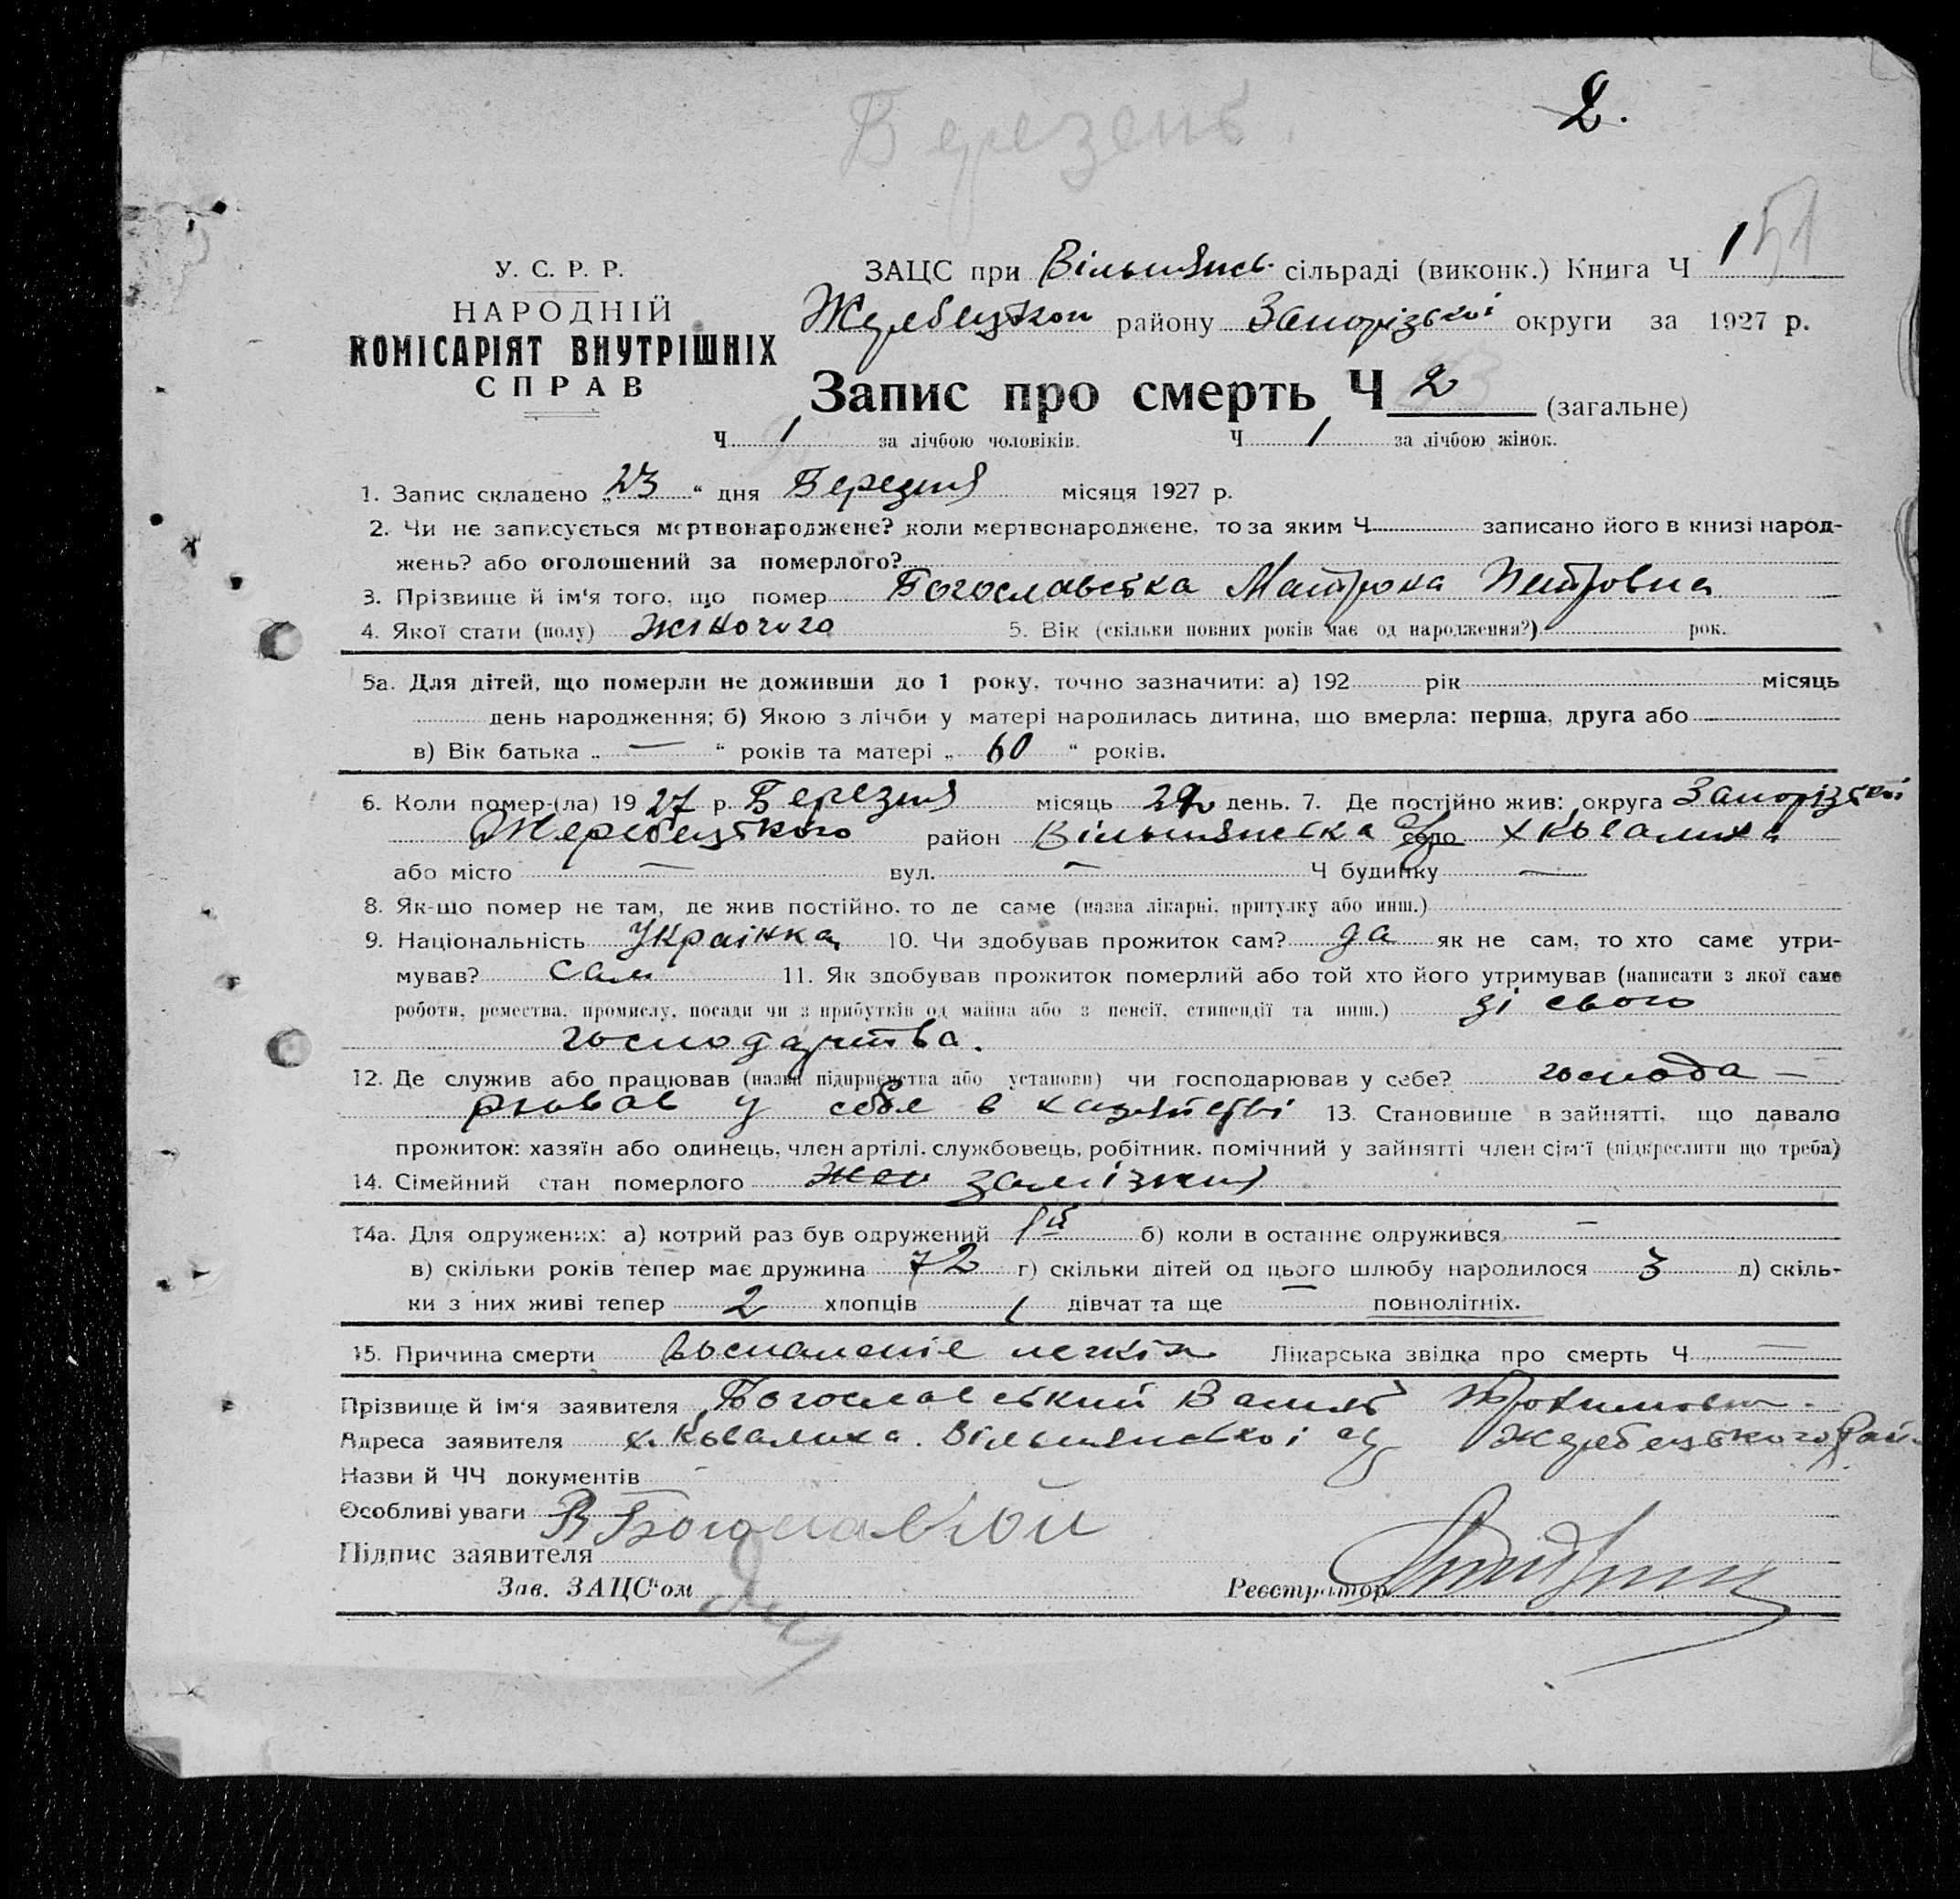 Березень.
2.
У. С. Р. Р.
НАРОДНІЙ
КОМІСАРІЯТ ВНУТРІШНІХ
СПРАВ
ЗАЦС при Вільнянсь. сільраді (виконк.) Книга Ч 1 51
району Запорізької округи за 1927 р.
Запис про смерть Ч 2 (загальне)
Ч 1 за лічбою чоловіків. Ч 1 за лічбою жінок.
1. Запис складено „23“ дня Березня місяця 1927 р.
2. Чи не записується мертвонароджене? коли мертвонароджене, то за яким Ч записано його в книзі народ-
жень? або оголошений за померлого?
3. Прізвище й ім'я того, що помер Богославська Матрона Петровна
4. Якої стати (полу) жіночого 5. Вік (скільки повних років має од народження?) рок.
5а. Для дітей, що померли не доживши до 1 року, точно зазначити: а) 192 рік місяць
день народження; б) Якою з лічби у матері народилась дитина, що вмерла: перша, друга або
в) Вік батька „—“ років та матері „60“ років.
6. Коли помер-(ла) 1927 р. Березня місяць день. 7. Де постійно жив: округа Запорізької
Жеребецького район Вільнянська село х
або місто — вул. — Ч будинку —
8. Як-що помер не там, де жив постійно, то де саме (назва лікарні, притулку або инш.)
9. Національність Украінка 10. Чи здобував прожиток сам? да як не сам, то хто саме утри-
мував? сам 11. Як здобував прожиток померлий або той хто його утримував (написати з якої саме
роботи, ремества, промислу, посади чи з прибутків од майна або з пенсії, стипендії та инш.) зі свого
господарства.
12. Де служив або працював (назва підприємства або установи) чи господарював у себе? господа —
рював у себе в хазяйстві 13. Становище в зайнятті, що давало
прожиток: хазяїн або одинець, член артілі, службовець, робітник, помічний у зайнятті член сім'ї (підкреслити що треба)
14. Сімейний стан померлого
14а. Для одружених: а) котрий раз був одружений 1й б) коли в останнє одружився —
в) скільки років тепер має дружина 72 г) скільки дітей од цього шлюбу народилося 3 д) скіль-
ки з них живі тепер 2 хлопців 1 дівчат та ще — повнолітніх.
15. Причина смерти воспаленіе легкіх Лікарська звідка про смерть Ч —
Прізвище й ім'я заявителя Богославський
Адреса заявителя х. Вільнянської Жеребецького рай.
Назви й ЧЧ документів —
Особливі уваги
Підпис заявителя
Зав. ЗАЦС'ом
Реєстратор